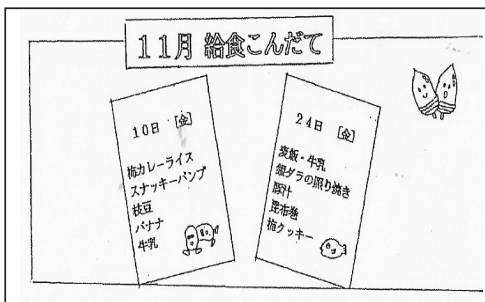 11月 給食こんだて
10日 [金]
柿カレーライス
スナッキーパンプ
枝豆
バナナ
牛乳
24日 [金]
麦飯・牛乳
銀ダラの照り焼き
豚汁
昆布巻
柿クッキー